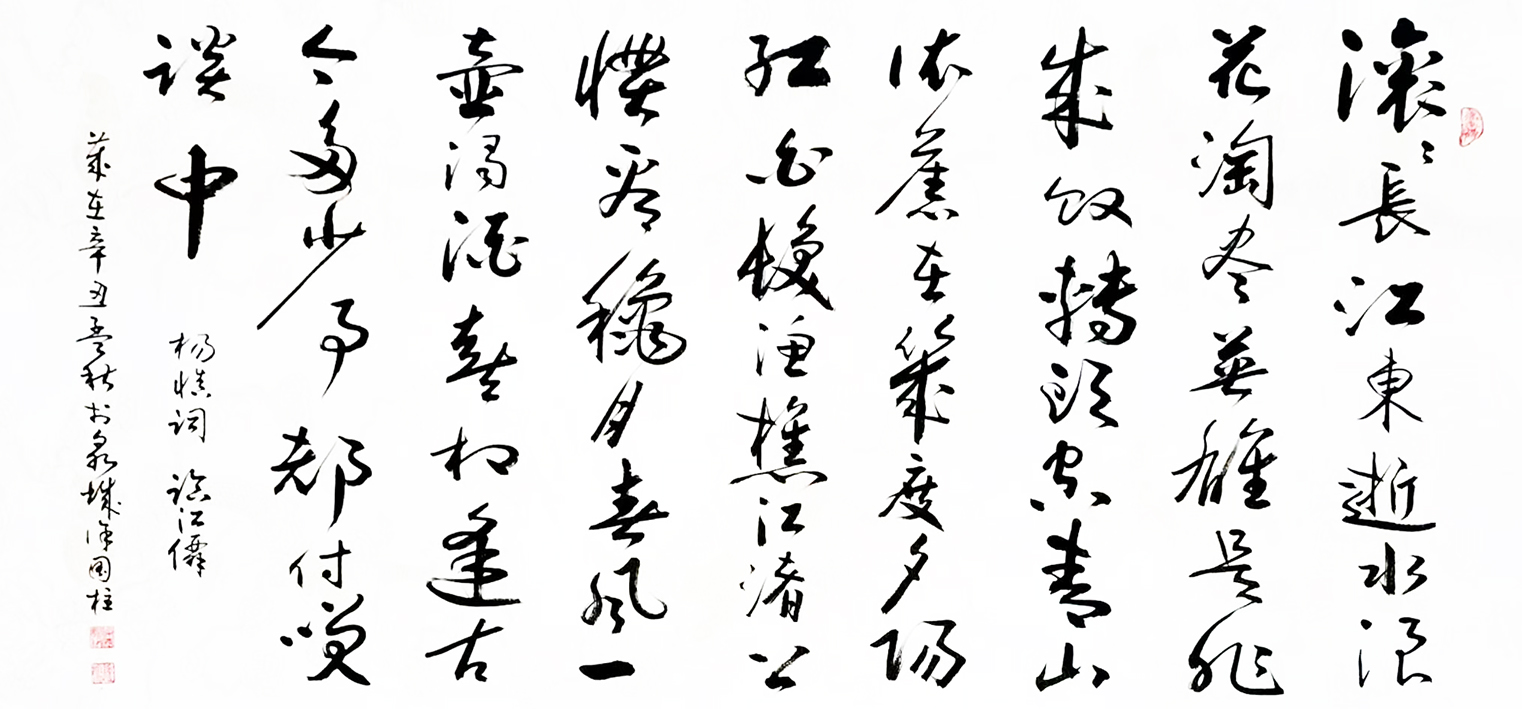 滚〻長江東逝水浪
花淘尽英雄是非
成败轉頭空青山
依舊在幾度夕陽
红白髮渔樵江渚上
慣看穐月春風一
壺濁酒喜相逢古
今多少事都付咲
談中
杨慎词 臨江僊
歲在辛丑孟秋於泉城国柱